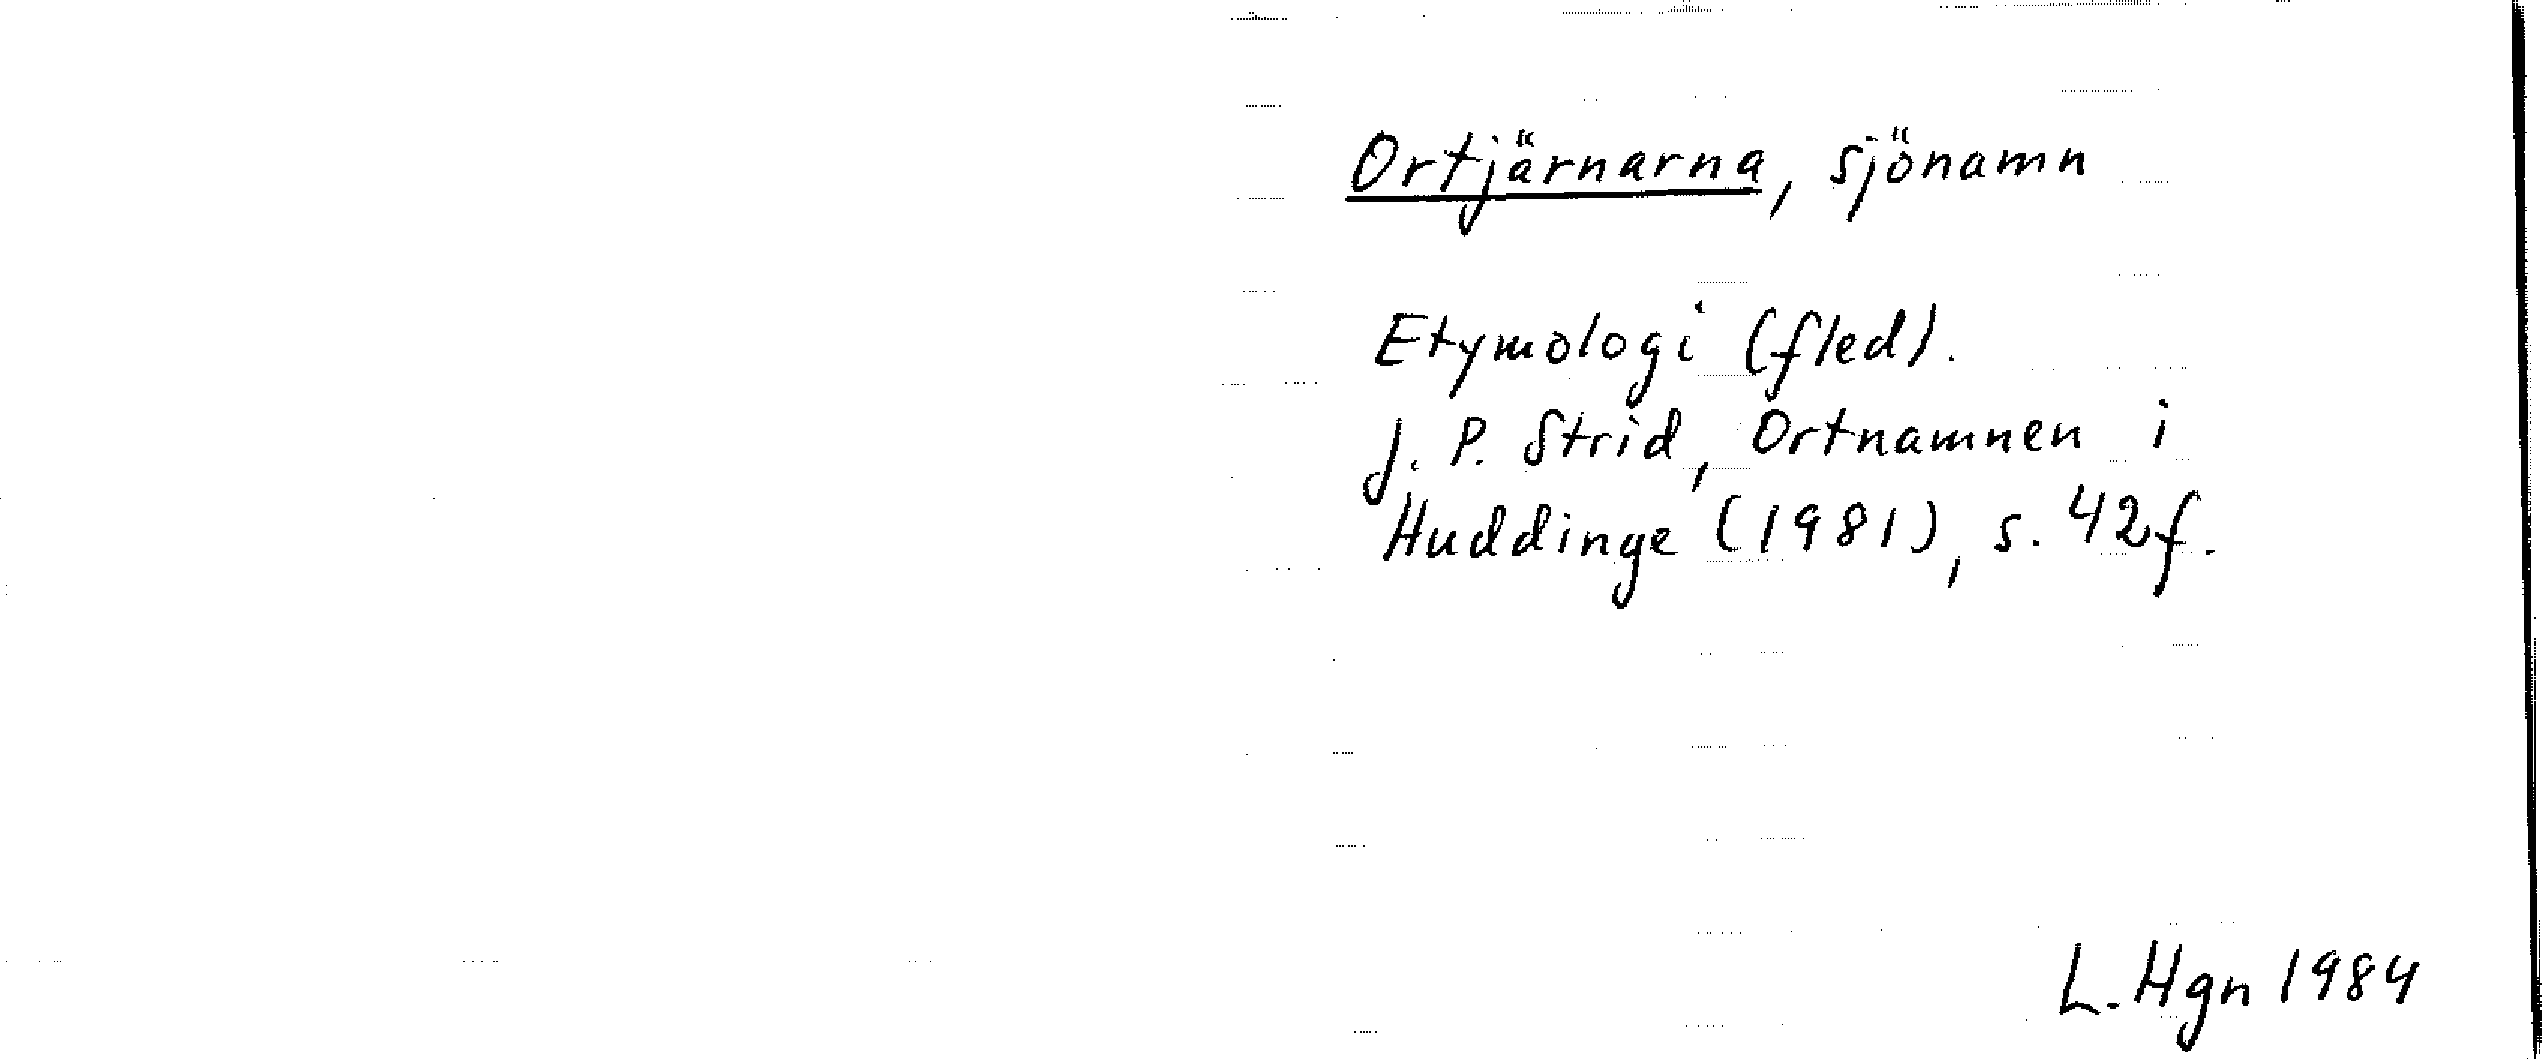 Ortjärnarna, sjönamn
Etymologi (fled).
J. P. Strid, Ortnamnen i
Huddinge (1981), s. 42f.
L. Hgn 1984